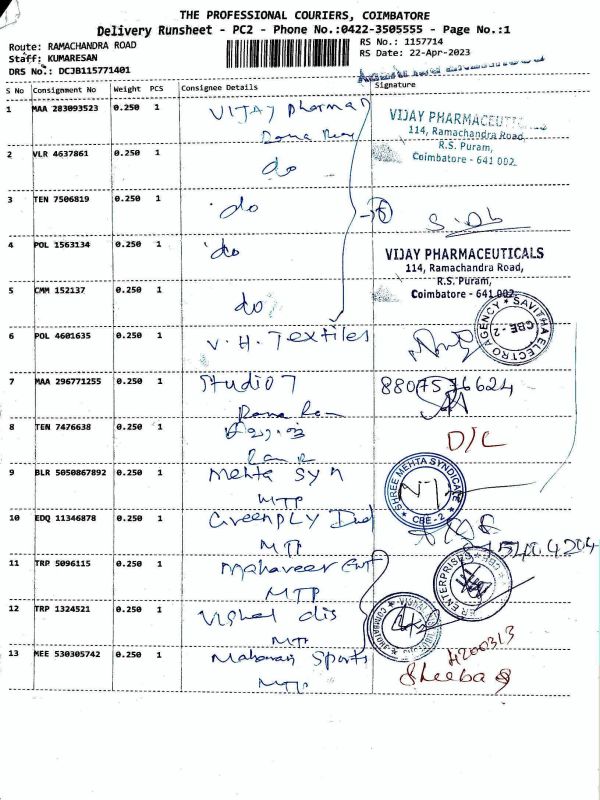 THE PROFESSIONAL COURIERS, COIMBATORE
Delivery Runsheet - PC2 - Phone No.:0422-3505555 - Page No.:1
Route: RAMACHANDRA ROAD
RS No.: 1157714
Staff: KUMARESAN
RS Date: 22-Apr-2023
DRS No.: DCJB115771401
S No Consignment No Weight PCS Consignee Details Signature
1 MAA 283093523 0.250 1 VIJAY pharma
VIJAY PHARMACEUTICALS
114, Ramachandra Road,
R.S. Puram,
Coimbatore - 641 002.
2 VLR 4637861 0.250 1 do
3 TEN 7506819 0.250 1 do
4 POL 1563134 0.250 1 do
VIJAY PHARMACEUTICALS
114, Ramachandra Road,
R.S. Puram,
Coimbatore - 641 002.
5 CMM 152137 0.250 1 do
SAVITHA ELECTRO AGENCY * CBE-2 *
6 POL 4601635 0.250 1 V. H. Textiles
7 MAA 296771255 0.250 1 Studio 7
8807576624
8 TEN 7476638 0.250 1
D/C
9 BLR 5050867892 0.250 1 Mehta Syn
MTP
SHREE MEHTA SYNDICATE
* CBE - 2 *
10 EDQ 11346878 0.250 1 Greenply Ind
MTP
11 TRP 5096115 0.250 1 Mahaveer Ent
MTP
ENTERPRISES
12 TRP 1324521 0.250 1 Vishal dis
MTP
13 MEE 530305742 0.250 1 Sports
MTP
Sheeba